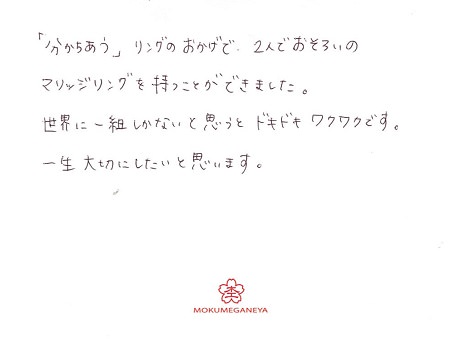 「分かちあう」リングのおかげで、2人でおそろいの
マリッジリングを持つことができました。
世界に一組しかないと思うとドキドキワクワクです。
一生大切にしたいと思います。
MOKUMEGANEYA